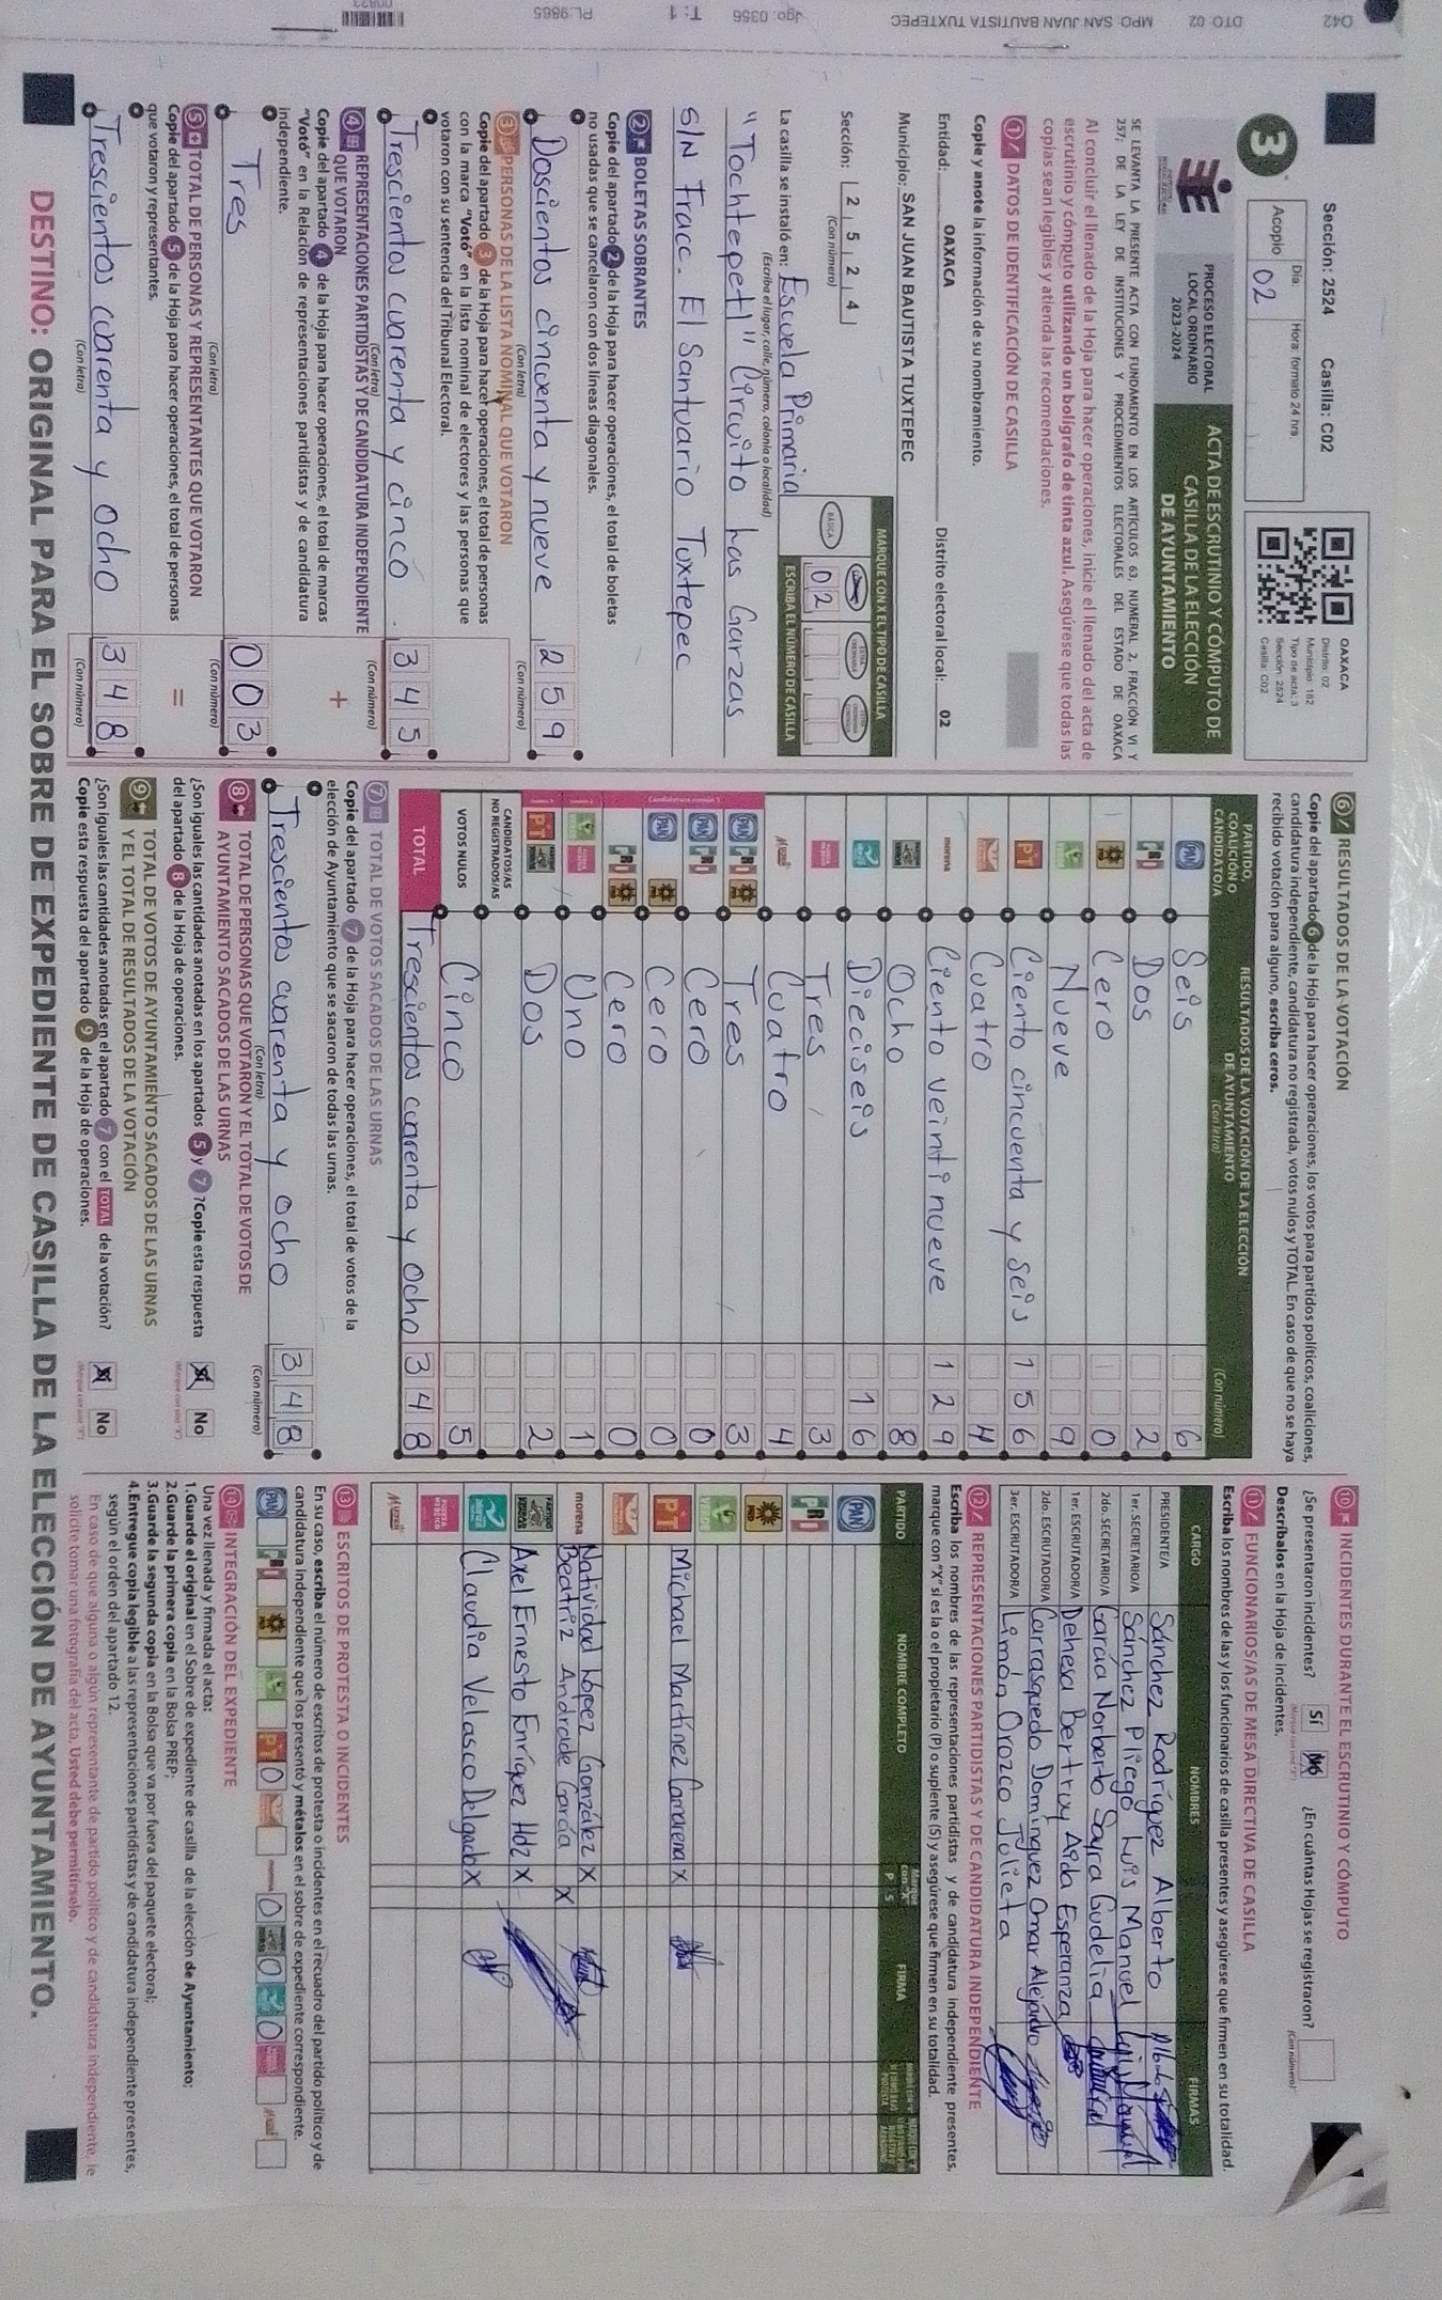 042
DTO. 02
MPO: SAN JUAN BAUTISTA TUXTEPEC
Jgo: 0356
T: 1
PL: 9865
Sección: 2524 Casilla: C02
3
Acopio
Día:
02
Hora: formato 24 hrs.
OAXACA
Distrito: 02
Municipio: 182
Tipo de acta: 3
Sección: 2524
Casilla: C02
PROCESO ELECTORAL
LOCAL ORDINARIO
2023-2024
ACTA DE ESCRUTINIO Y CÓMPUTO DE
CASILLA DE LA ELECCIÓN
DE AYUNTAMIENTO
SE LEVANTA LA PRESENTE ACTA CON FUNDAMENTO EN LOS ARTÍCULOS 63, NUMERAL 2, FRACCIÓN VI Y
257; DE LA LEY DE INSTITUCIONES Y PROCEDIMIENTOS ELECTORALES DEL ESTADO DE OAXACA
Al concluir el llenado de la Hoja para hacer operaciones, inicie el llenado del acta de
escrutinio y cómputo utilizando un bolígrafo de tinta azul. Asegúrese que todas las
copias sean legibles y atienda las recomendaciones.
1 DATOS DE IDENTIFICACIÓN DE CASILLA
Copie y anote la información de su nombramiento.
Entidad: OAXACA Distrito electoral local: 02
Municipio: SAN JUAN BAUTISTA TUXTEPEC
Sección: 2 5 2 4
(Con número)
MARQUE CON X EL TIPO DE CASILLA
BÁSICA
ESCRIBA EL NÚMERO DE CASILLA
02
La casilla se instaló en: Escuela Primaria
(Escriba el lugar, calle, número, colonia o localidad)
"Tochtepetl" Circuito las Garzas
S/N Fracc. El Santuario Tuxtepec
2 BOLETAS SOBRANTES
Copie del apartado 2 de la Hoja para hacer operaciones, el total de boletas
no usadas que se cancelaron con dos líneas diagonales.
Doscientos cincuenta y nueve 259
(Con letra) (Con número)
3 PERSONAS DE LA LISTA NOMINAL QUE VOTARON
Copie del apartado 3 de la Hoja para hacer operaciones, el total de personas
con la marca "Votó" en la lista nominal de electores y las personas que
votaron con su sentencia del Tribunal Electoral.
Trescientos cuarenta y cinco. 345
(Con letra) (Con número)
4 REPRESENTACIONES PARTIDISTAS Y DE CANDIDATURA INDEPENDIENTE
QUE VOTARON
Copie del apartado 4 de la Hoja para hacer operaciones, el total de marcas
"Votó" en la Relación de representaciones partidistas y de candidatura
independiente.
+
Tres 003
(Con letra) (Con número)
5 TOTAL DE PERSONAS Y REPRESENTANTES QUE VOTARON
Copie del apartado 5 de la Hoja para hacer operaciones, el total de personas
que votaron y representantes.
=
Trescientos cuarenta y ocho 348
(Con letra) (Con número)
6 RESULTADOS DE LA VOTACIÓN
Copie del apartado 6 de la Hoja para hacer operaciones, los votos para partidos políticos, coaliciones,
candidatura independiente, candidatura no registrada, votos nulos y TOTAL. En caso de que no se haya
recibido votación para alguno, escriba ceros.
PARTIDO,
COALICIÓN O
CANDIDATO/A
RESULTADOS DE LA VOTACIÓN DE LA ELECCIÓN
DE AYUNTAMIENTO
(Con letra) (Con número)
PAN Seis 6
PRI Dos 2
Cero 0
Nueve 9
PT Ciento cincuenta y seis 156
Cuatro 4
morena Ciento veintinueve 129
Ocho 8
Dieciseis 16
Tres 3
Cuatro 4
PAN PRI Tres 3
PAN PRI Cero 0
PAN Cero 0
PRI Cero 0
Uno 1
PT Dos 2
CANDIDATOS/AS
NO REGISTRADOS/AS
VOTOS NULOS Cinco 5
TOTAL Trescientos cuarenta y ocho 348
7 TOTAL DE VOTOS SACADOS DE LAS URNAS
Copie del apartado 7 de la Hoja para hacer operaciones, el total de votos de la
elección de Ayuntamiento que se sacaron de todas las urnas.
Trescientos cuarenta y ocho 348
(Con letra) (Con número)
8 TOTAL DE PERSONAS QUE VOTARON Y EL TOTAL DE VOTOS DE
AYUNTAMIENTO SACADOS DE LAS URNAS
¿Son iguales las cantidades anotadas en los apartados 5 y 7 ?Copie esta respuesta
del apartado 8 de la Hoja de operaciones.
Sí No
9 TOTAL DE VOTOS DE AYUNTAMIENTO SACADOS DE LAS URNAS
Y EL TOTAL DE RESULTADOS DE LA VOTACIÓN
¿Son iguales las cantidades anotadas en el apartado 7 con el TOTAL de la votación?
Copie esta respuesta del apartado 9 de la Hoja de operaciones.
Sí No
10 INCIDENTES DURANTE EL ESCRUTINIO Y CÓMPUTO
¿Se presentaron incidentes? Sí No ¿En cuántas Hojas se registraron?
(Con número)
Descríbalos en la Hoja de incidentes.
11 FUNCIONARIOS/AS DE MESA DIRECTIVA DE CASILLA
Escriba los nombres de las y los funcionarios de casilla presentes y asegúrese que firmen en su totalidad.
CARGO NOMBRES FIRMAS
PRESIDENTE/A Sánchez Rodríguez Alberto
1er. SECRETARIO/A Sánchez Pliego Luis Manuel
2do. SECRETARIO/A García Norberto Sayra Gudelia
1er. ESCRUTADOR/A Dehesa Bertruy Aida Esperanza
2do. ESCRUTADOR/A Carrasquedo Domínguez Omar Alejandro
3er. ESCRUTADOR/A Limón Orozco Julieta
12 REPRESENTACIONES PARTIDISTAS Y DE CANDIDATURA INDEPENDIENTE
Escriba los nombres de las representaciones partidistas y de candidatura independiente presentes,
marque con "X" si es la o el propietario (P) o suplente (S) y asegúrese que firmen en su totalidad.
PARTIDO NOMBRE COMPLETO Marque con "X" P S FIRMA
PAN
PRI
PT Michael Martínez Camarena X
morena Natividad López González X
Beatriz Andrade García X
Axel Ernesto Enríquez Hdz X
Claudia Velasco Delgado X
13 ESCRITOS DE PROTESTA O INCIDENTES
En su caso, escriba el número de escritos de protesta o incidentes en el recuadro del partido político y de
candidatura independiente que los presentó y métalos en el sobre de expediente correspondiente.
PAN PRI PT 0 morena 0 0 0
14 INTEGRACIÓN DEL EXPEDIENTE
Una vez llenada y firmada el acta:
1.Guarde el original en el Sobre de expediente de casilla de la elección de Ayuntamiento;
2.Guarde la primera copia en la Bolsa PREP;
3.Guarde la segunda copia en la Bolsa que va por fuera del paquete electoral;
4.Entregue copia legible a las representaciones partidistas y de candidatura independiente presentes,
según el orden del apartado 12.
En caso de que alguna o algún representante de partido político y de candidatura independiente, le
solicite tomar una fotografía del acta, Usted debe permitírselo.
DESTINO: ORIGINAL PARA EL SOBRE DE EXPEDIENTE DE CASILLA DE LA ELECCIÓN DE AYUNTAMIENTO.